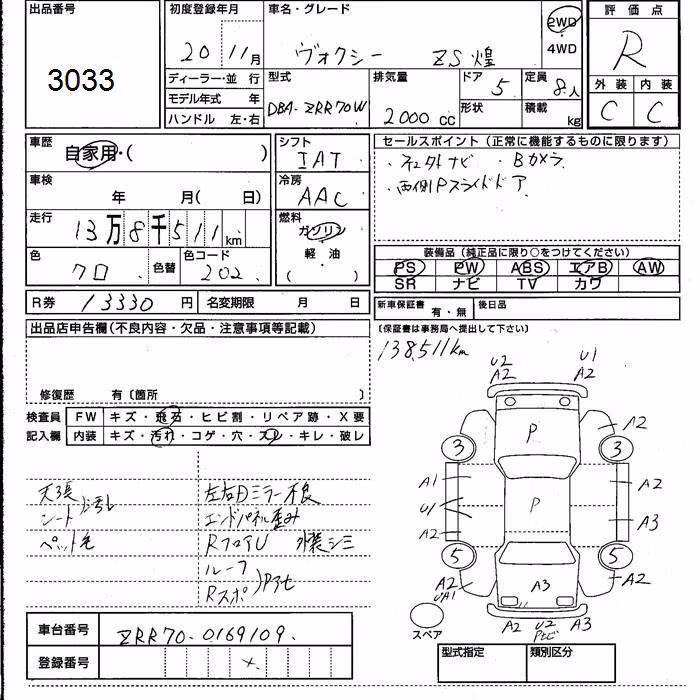 出品番号
3033
初度登録年月
20 11月
車名・グレード
ヴォクシー ZS煌
2WD
4WD
評価点
R
外装 内装
C C
ディーラー・並行
モデル年式 年
ハンドル 左・右
型式
DBA-ZRR70W
排気量
2000 cc
ドア 5
形状
定員 8人
積載 kg
車歴
自家用・( )
車検
年 月( 日)
走行
13万8千511km
色
クロ
色替
色コード
202
シフト
IAT
冷房
AAC
燃料
ガソリン
・
軽油
( )
セールスポイント(正常に機能するものに限ります)
・ナビ ・Bカメラ
・両側Pスライドドア
装備品(純正品に限り○をつけてください)
PS PW ABS エアB AW
SR ナビ TV カワ
R券 13330円 名変期限 月 日
新車保証書 有・無 後日品
(保証書は事務局へ提出して下さい)
出品店申告欄(不良内容・欠品・注意事項等記載)
修復歴 有〔箇所 〕
138,511km
検査員
記入欄
FW キズ・飛石・ヒビ割・リペア跡・X要
内装 キズ・汚れ・コゲ・穴・スレ・キレ・破レ
天張
シート
ペット毛
左右Dミラー不良
エンドパネル歪み
RフロアU 外装シミ
ルーフ
Rスポ
U2
A2
U1
A2
A2
P
3
3
A1
A2
U1
P
A3
A2
5
5
A2
UA1
A3
A2
A2
U2
A3
スペア
車台番号 ZRR70-0169109
登録番号
型式指定 類別区分